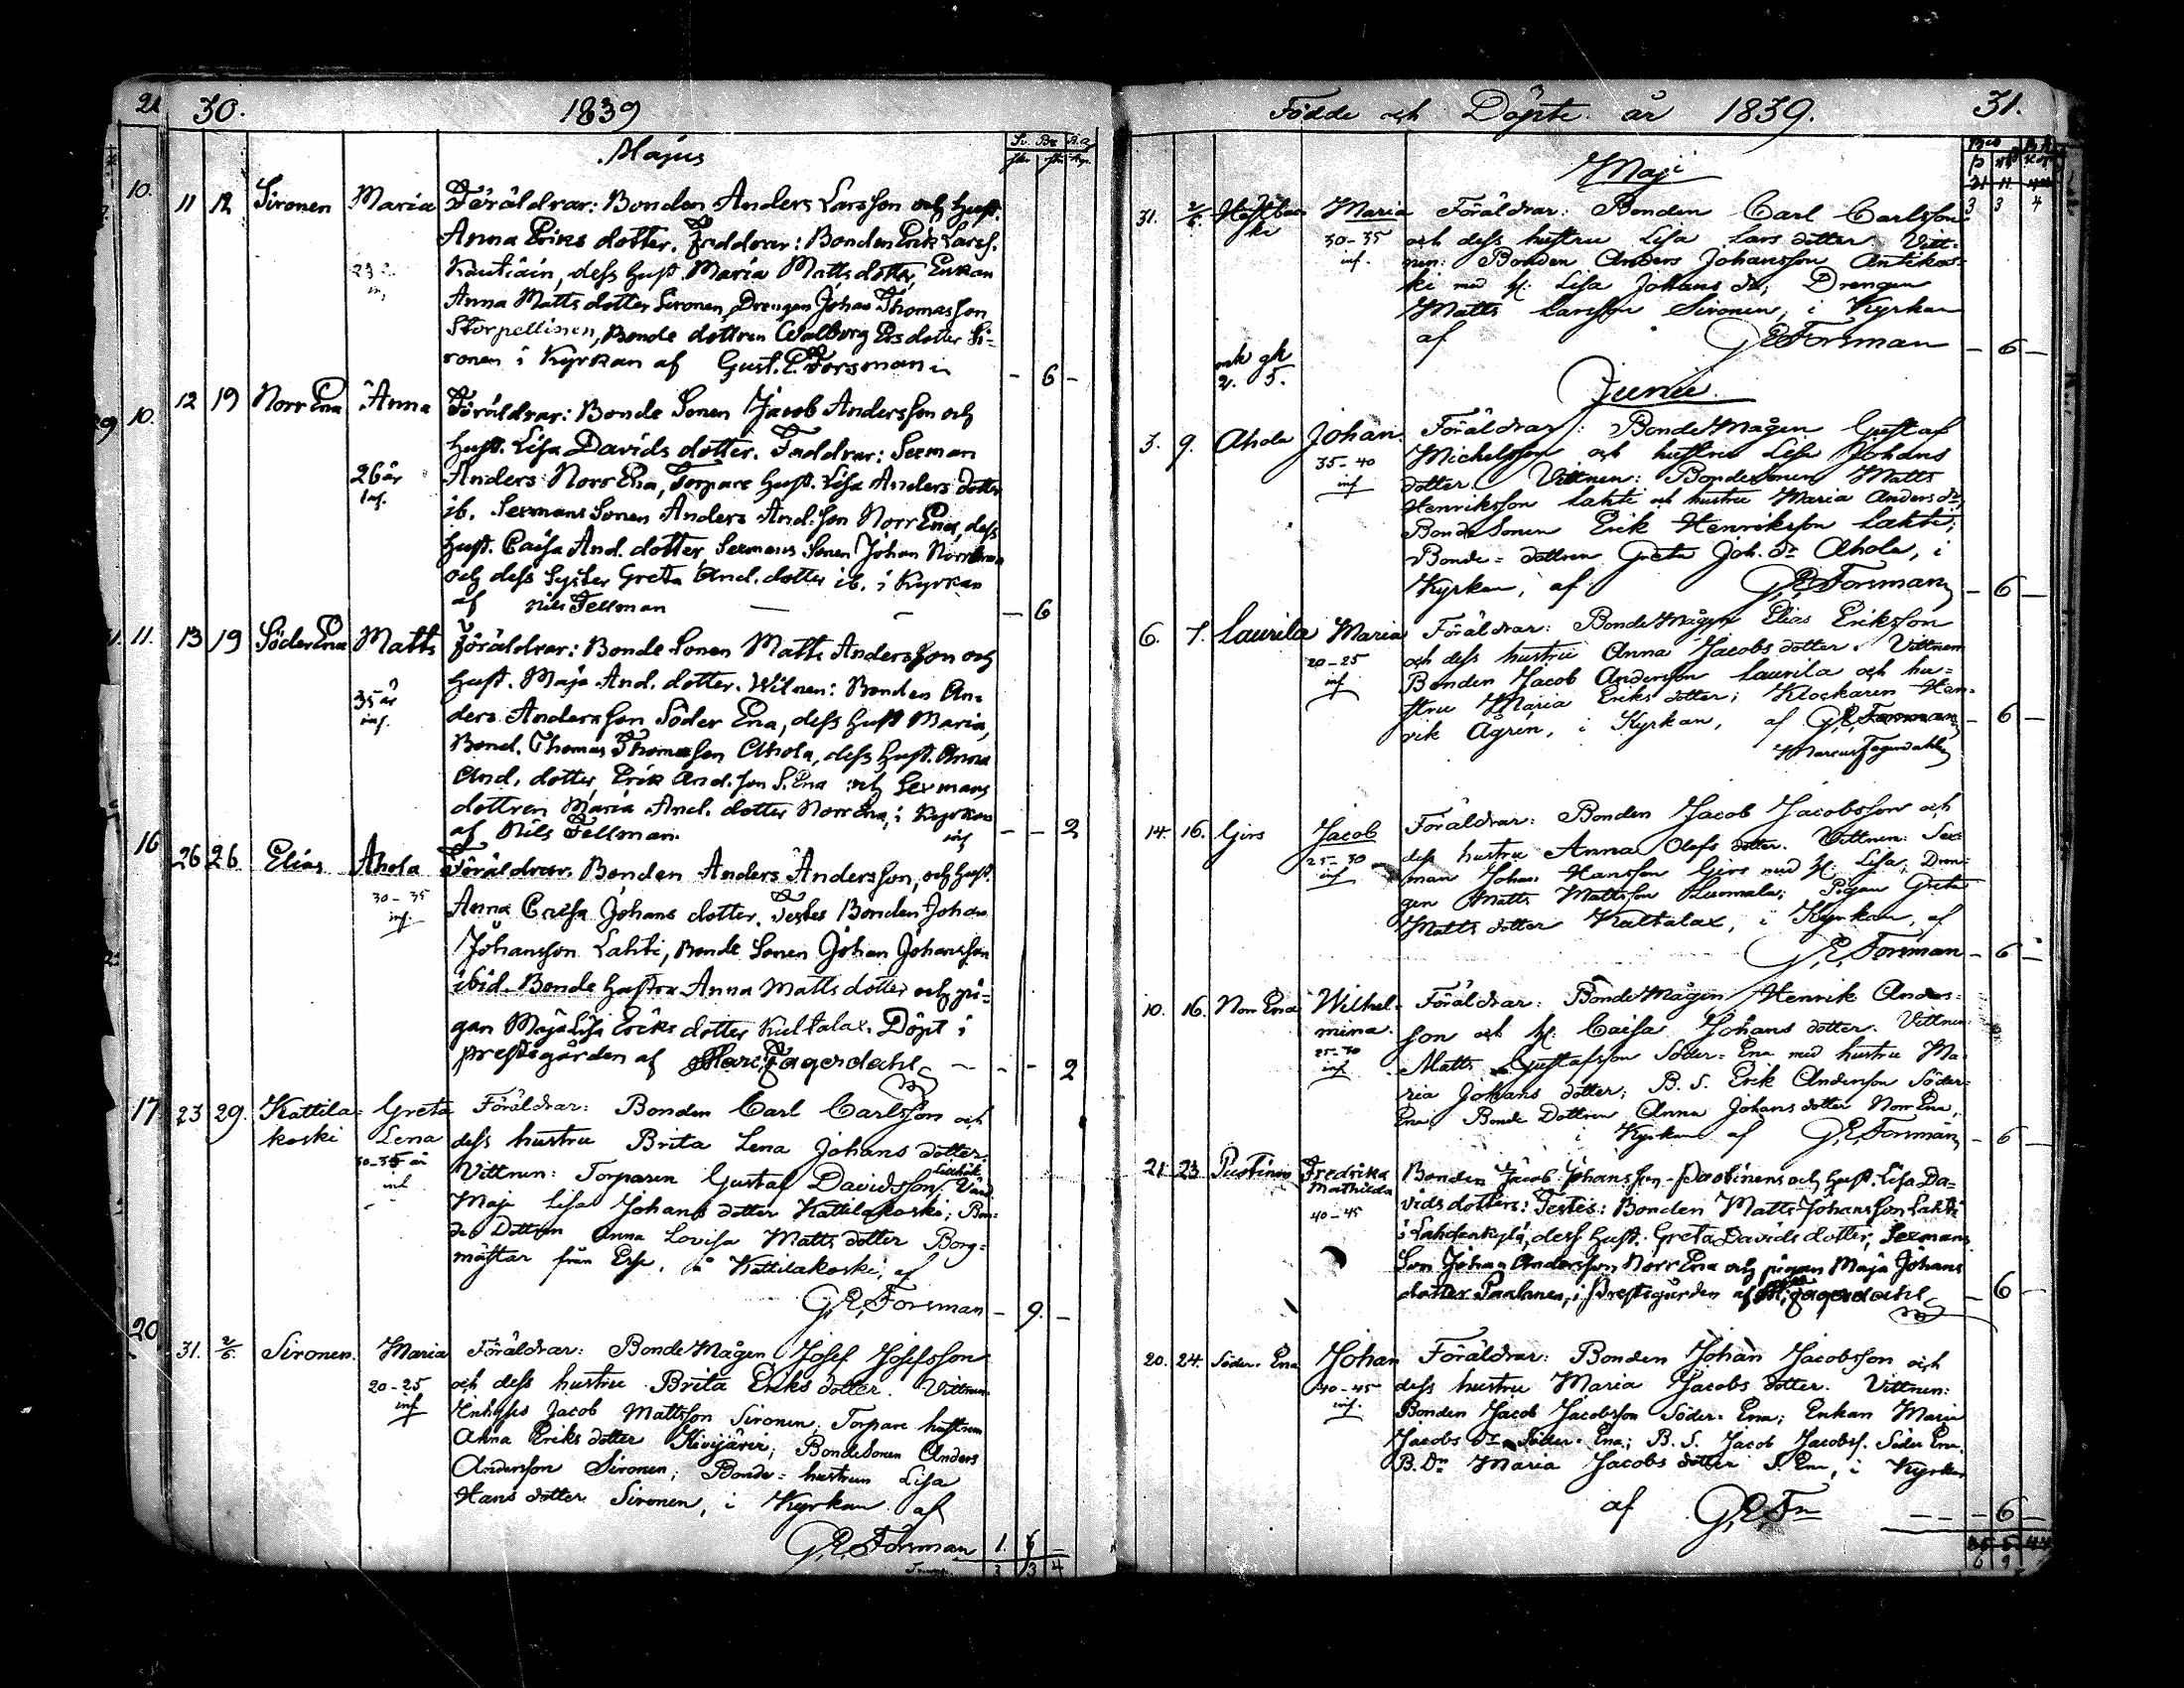 21 30. 1839
Majus
10. 11 12 Sironen Maria Föräldrar: Bonden Anders Larsson och Hust.
Anna Eriks dotter. Faddrar: Bonden Erik Larss.
Kautiain, dess Hust. Maria Matts dotter, Enkan
Anna Matts dotter Sironen, Drengen Johan Thomasson
Storpellinen, Bonde dottren Walborg Ers dotter Si-
ronen i Kyrkan af Gust. E. Forsman
- 6 -
10. 12 19 Norr Ena Anna Föräldrar: Bonde Sonen Jacob Andersson och
Hust. Lisa Davids dotter. Faddrar: Sexman
26 år inf. Anders Norr Ena, Torpare Hust. Lisa Anders dotter
ib. Sexmans Sonen Anders And.son Norr Ena, dess
Hust. Caisa And. dotter, Sexmans Sonen Johan Norr Ena
och dess Syster Greta And. dotter ib. i Kyrkan
af Nils Fellman — 6
11. 13 19 Söder Ena Matts Föräldrar: Bonde Sonen Matts Andersson och
Hust. Maja And. dotter. Witnen: Bonden An-
35 år inf. ders Andersson Söder Ena, dess Hust Maria,
Bond. Thomas Thomasson Ahola, dess Hust. Anna
And. dotter, Erik And.son S. Ena och Sexmans
dottren Maria And. dotter Norr Ena, i Kyrkan
af Nils Fellman. - - 2
16 26 26 Elias Ahola Föräldrar. Bonden Anders Andersson, och Hust.
30-35 inf. Anna Caisa Johans dotter. Testes Bonden Johan
Johansson Lahti, Bonde Sonen Johan Johansson
ibid. Bonde Hustru Anna Matts dotter och pi-
gan Maja Lisa Eriks dotter Kultalax. Döpt i
prestgården af Marc. Fagerdahl - - 2
17 23 29. Kattila- Greta Föräldrar: Bonden Carl Carlsson och
koski Lena dess hustru Brita Lena Johans dotter.
30-35 år inf. Vittnen: Torparen Gustaf Davidsson
Maja Lisa Johans dotter Kattilakoski; Bon-
de Dottren Anna Lovisa Matts dotter Borg-
mästar från Esse. i Kattilakoski, af
G. E. Forsman - 9. -
20 31. 2/6. Sironen. Maria Föräldrar: BondeMågen Josef Josefsson
20-25 inf och dess hustru Brita Eriks dotter. Vittnen
Jacob Mattsson Sironen; Torpare hustrun
Anna Eriks dotter Kivijärvi; Bonde Sonen Anders
Andersson Sironen; Bonde-hustrun Lisa
Hans dotter Sironen, i Kyrkan af
G. E. Forsman 1. 6 -
3 3 4
Födde och Döpte år 1839. 31.
Maji
31. 2/6. Maria Föräldrar: Bonden Carl Carlsson
30-35 inf. och dess hustru Lisa Lars dotter Vitt-
nen: Bonden Anders Johansson Antikos-
ki med h: Lisa Johans dr, Drengen
Matts Larsson Sironen, i Kyrkan
af G E Forsman - 6 -
mk gk
2. 5.
Junii
3. 9. Ahola Johan. Föräldrar: BondeMågen Gustaf
35-40 inf Michelsson och hustru Lisa Johans
dotter. Vittnen: Bondesonen Matts
Henriksson Lahti och hustru Maria Anders dr,
Bonde Sonen Erik Henriksson Lahti;
Bonde-dottren Greta Joh. dr Ahola, i
Kyrkan, af G. E. Forsman - 6 -
6. 7. Laurila Maria Föräldrar: BondeMågen Elias Eriksson
20-25 inf och dess hustru Anna Jacobs dotter. Vittnen
Bonden Jacob Andersson Laurila och hu-
stru Maria Eriks dotter; Klockaren Hen-
rik Ågren, i Kyrkan, af G. E. Forsman - 6 -
Marcus Fagerdahl
14. 16. Girs Jacob Föräldrar: Bonden Jacob Jacobsson och
25-30 inf dess hustru Anna Olofs dotter. Vittnen: Sex-
man Johan Hansson Girs med h: Lisa; Dren-
gen Matts Mattsson Luomala; Pigan Greta
Matts dotter Kaltalax, i Kyrkan, af
G. E. Forsman - 6 -
10. 16. Norr Ena Wilhel- Föräldrar: BondeMågen Henrik Anders-
mina. son och h: Caisa Johans dotter. Vittnen
25-30 inf Matts Gustafsson Söder-Ena med hustru Ma-
ria Johans dotter; B. S. Erik Andersson Söder-
Ena; Bonde Dottren Anna Johans dotter Norr Ena,
i Kyrkan af G. E. Forsman - 6 -
21. 23. Puotinen Fredrika Bonden Jacob Johansson Puotinens och Hust. Lisa Da-
Mathilda vids dotters: Testes: Bonden Matts Johansson Lahti
40-45 i Lahdenkylä, dess Hust. Greta Davids dotter, Sexmans
Son Johan Andersson Norr Ena och pigan Maja Johans
dotter Paalanen, i Prestgården af M. Fagerdahl - 6 -
20. 24. Söder-Ena Johan Föräldrar: Bonden Johan Jacobsson och
40-45 inf. dess hustru Maria Jacobs dotter. Vittnen:
Bonden Jacob Jacobsson Söder-Ena; Enkan Maria
Jacobs dr Söder-Ena; B. S. Jacob Jacobss. Söder Ena.
B. Dr Maria Jacobs dotter S. Ena, i Kyrkan
af G. E. Fn - 6 -
6 9